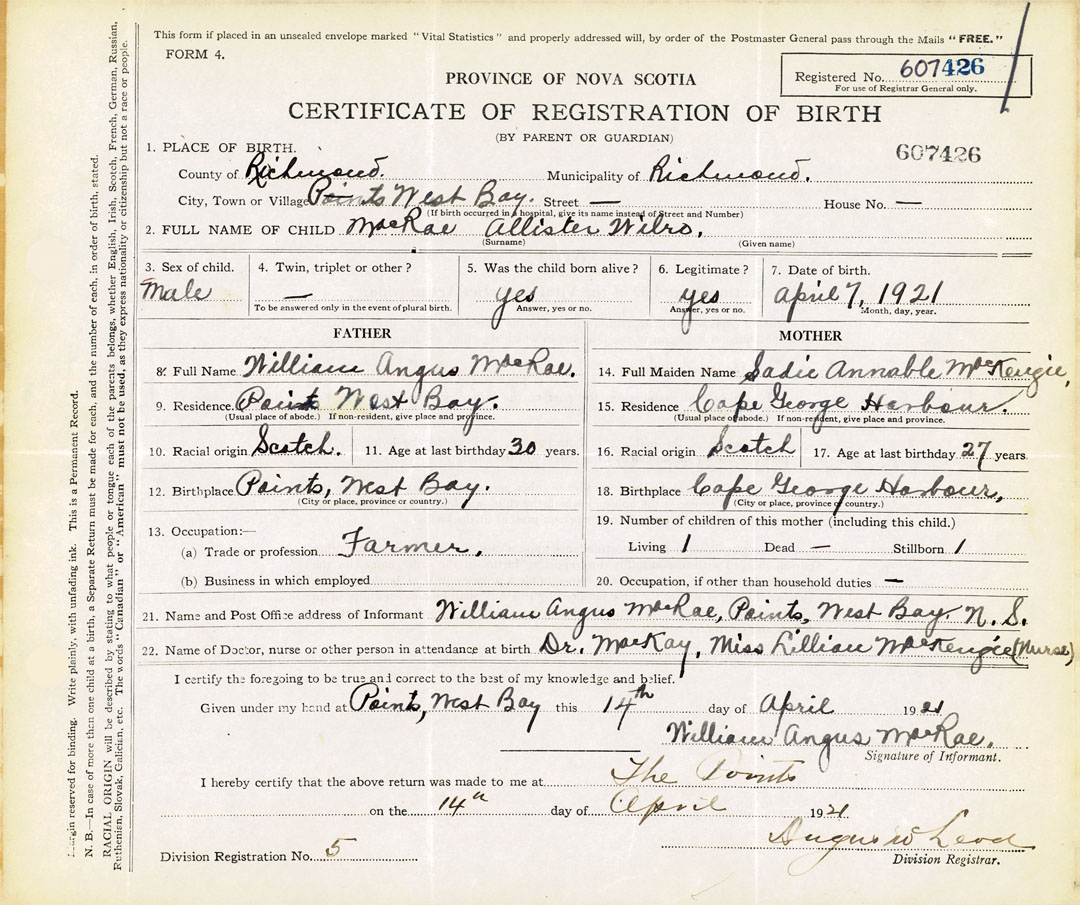 This form if placed in an unsealed envelope marked "Vital Statistics" and properly addressed will, by order of the Postmaster General pass through the Mails "FREE."
FORM 4.
Registered No. 607426
For use of Registrar General only.
PROVINCE OF NOVA SCOTIA
CERTIFICATE OF REGISTRATION OF BIRTH
(BY PARENT OR GUARDIAN)
607426
1. PLACE OF BIRTH.
County of Richmond. Municipality of Richmond.
City, Town or Village Points West Bay. Street — House No. —
(If birth occurred in a hospital, give its name instead of Street and Number)
2. FULL NAME OF CHILD MacRae Allister Wilro.
(Surname) (Given name)
3. Sex of child. 4. Twin, triplet or other? 5. Was the child born alive? 6. Legitimate? 7. Date of birth.
Male — yes yes April 7, 1921
To be answered only in the event of plural birth. Answer, yes or no. Answer, yes or no. Month, day, year.
FATHER
8. Full Name William Angus MacRae.
9. Residence. Points West Bay.
(Usual place of abode.) If non-resident, give place and province.
10. Racial origin Scotch. 11. Age at last birthday 30 years.
12. Birthplace Points, West Bay.
(City or place, province or country.)
13. Occupation:—
(a) Trade or profession Farmer.
(b) Business in which employed
MOTHER
14. Full Maiden Name Sadie Annable MacKenzie,
15. Residence Cape George Harbour.
(Usual place of abode.) If non-resident, give place and province.
16. Racial origin Scotch 17. Age at last birthday 27 years
18. Birthplace Cape George Harbour,
(City or place, province or country.)
19. Number of children of this mother (including this child.)
Living 1 Dead — Stillborn 1
20. Occupation, if other than household duties —
21. Name and Post Office address of Informant William Angus MacRae, Points, West Bay. N. S.
22. Name of Doctor, nurse or other person in attendance at birth Dr. MacKay, Miss Lillian MacKenzie (Nurse)
I certify the foregoing to be true and correct to the best of my knowledge and belief.
Given under my hand at Points, West Bay this 14th day of April 1921
William Angus MacRae.
Signature of Informant.
I hereby certify that the above return was made to me at The Points
on the 14th day of April 1921
Angus Leod
Division Registration No. 5 Division Registrar.
Margin reserved for binding. Write plainly, with unfading ink. This is a Permanent Record.
N. B.—In case of more than one child at a birth, a Separate Return must be made for each, and the number of each, in order of birth, stated.
RACIAL ORIGIN will be described by stating to what people or tongue each of the parents belongs, whether English, Irish, Scotch, French, German, Russian,
Ruthenian, Slovak, Galician, etc. The words "Canadian" or "American" must not be used, as they express nationality or citizenship but not a race or people.